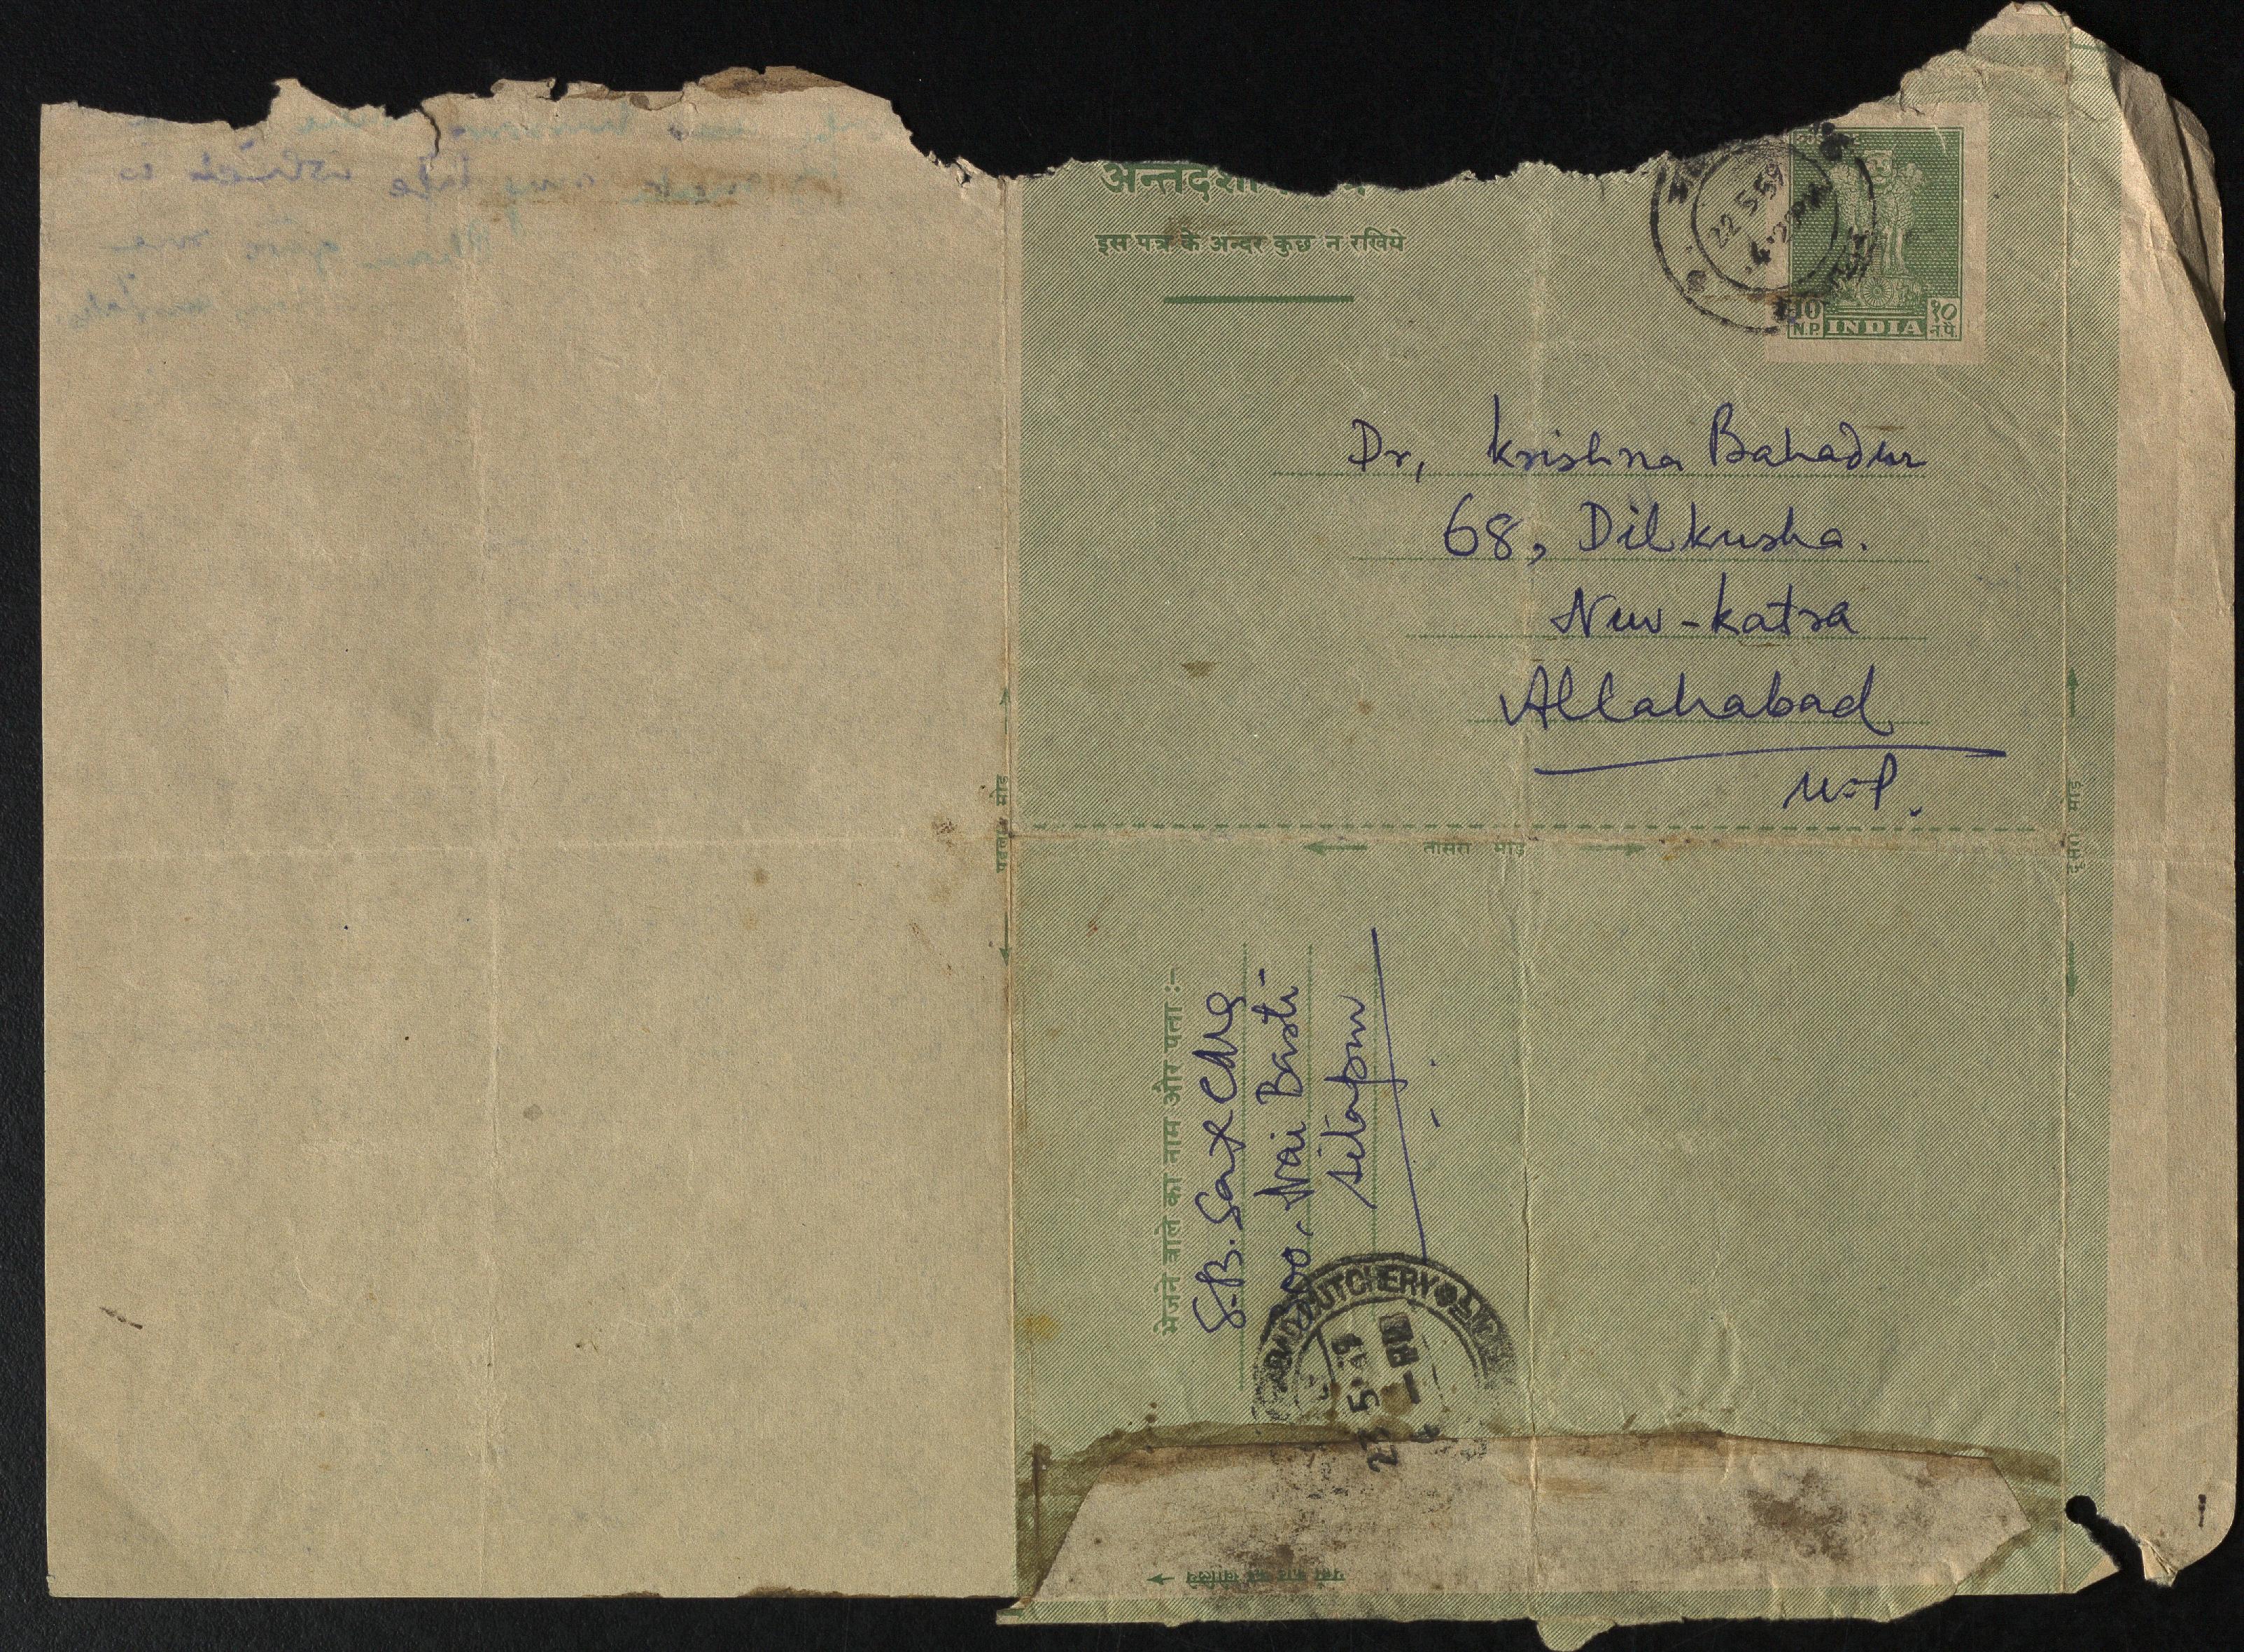 इस पत्र के अन्दर कुछ न रखिये
22 5 59
10 १०
N.P. INDIA न.पै.
Dr, Krishna Bahadur
68, Dilkusha.
New-Katra
Allahabad
U.P.
पहला मोड़
तीसरा मोड़
दूसरा मोड़
भेजने वाले का नाम और पता :-
S.B. Saxena
Nai Basti
Sitapur
CUTCHERY